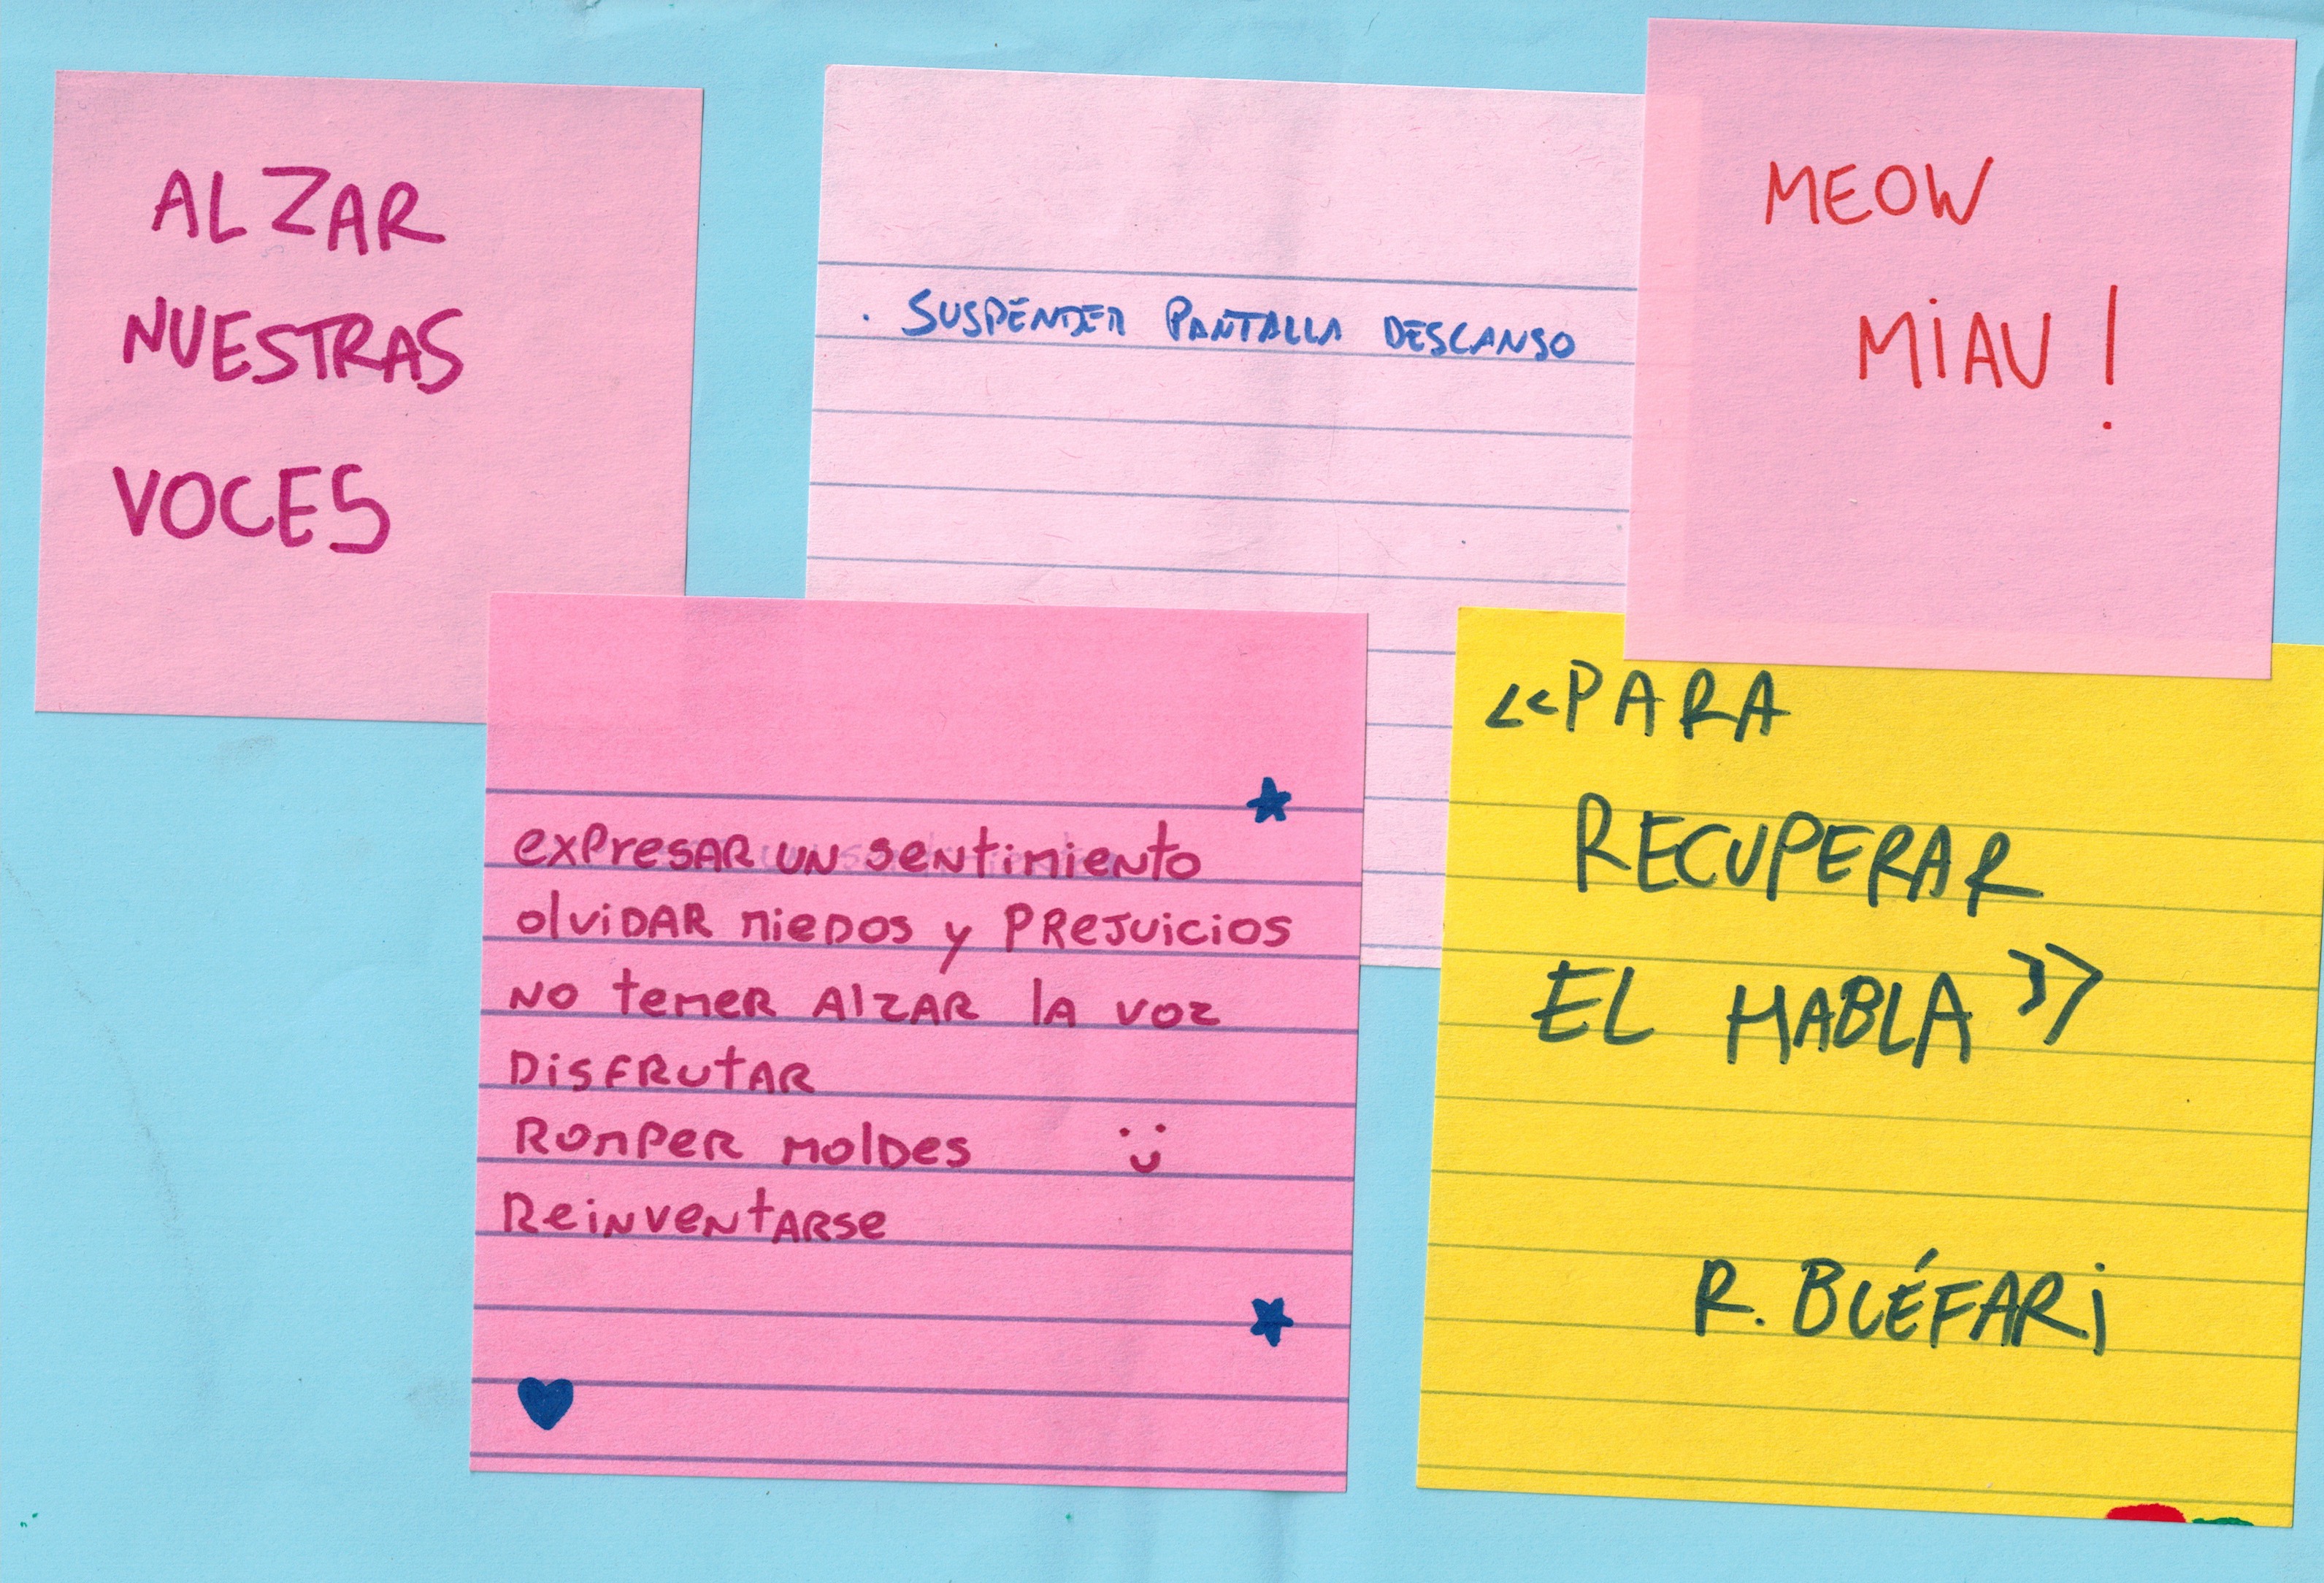 ALZAR
NUESTRAS
VOCES
. SUSPENDER PANTALLA DESCANSO
MEOW
MIAU!
expresAR UN sentimiento
olviDAR mieDos y PReJuicios
NO temeR AlzAR lA voz
DisFRutAR
RomPeR molDes
ReiNveNtARse
<<PARA
RECUPERAR
EL HABLA>>
R. BLÉFARi